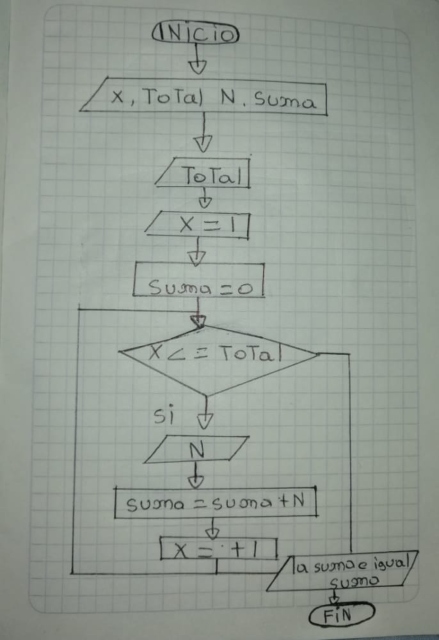 INICIO
X, ToTal N. Suma
ToTal
X = 1
Suma = 0
X <= ToTal
si
N
suma = suma + N
X = + 1
la suma e igual
suma
FiN